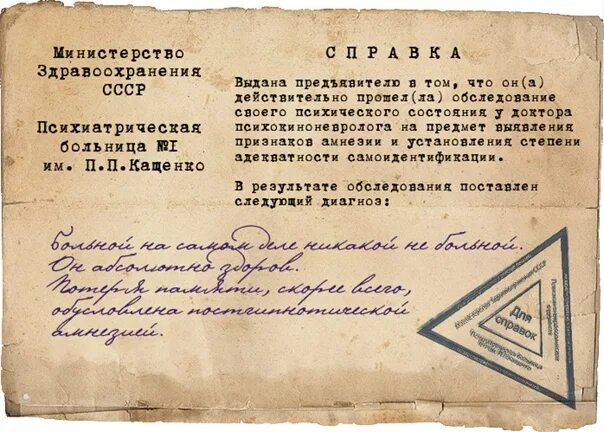 Министерство
Здравоохранения
СССР
Психиатрическая
больница №I
им. П.П.Кащенко
СПРАВКА
Выдана предъявителю в том, что он(а)
действительно прошел(ла) обследование
своего психического состояния у доктора
психокиноневролога на предмет выявления
признаков амнезии и установления степени
адекватности самоидентификации.
В результате обследования поставлен
следующий диагноз:
Больной на самом деле никакой не больной.
Он абсолютно здоров.
Потеря памяти, скорее всего,
обусловлена постгипнотической
амнезией.
Для
справок